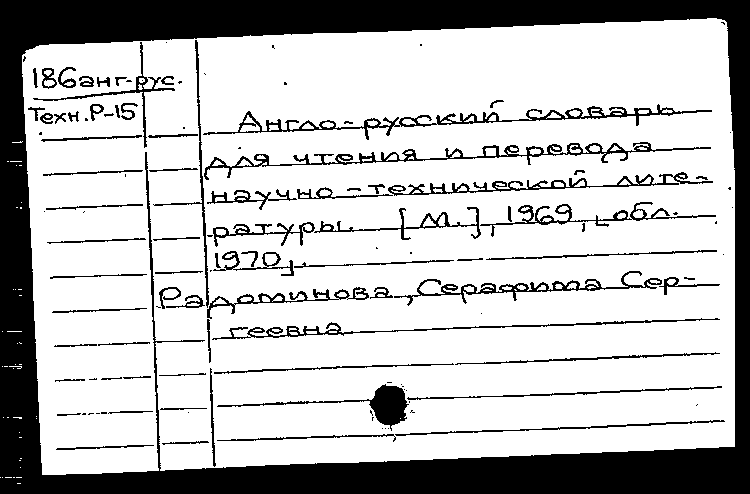 186анг-рус.
Техн.Р-15
Англо-русский словарь
для чтения и перевода
научно-технической лите-
ратуры. [М.], 1969, [обл.
1970].
Радоминова, Серафима Сер-
геевна